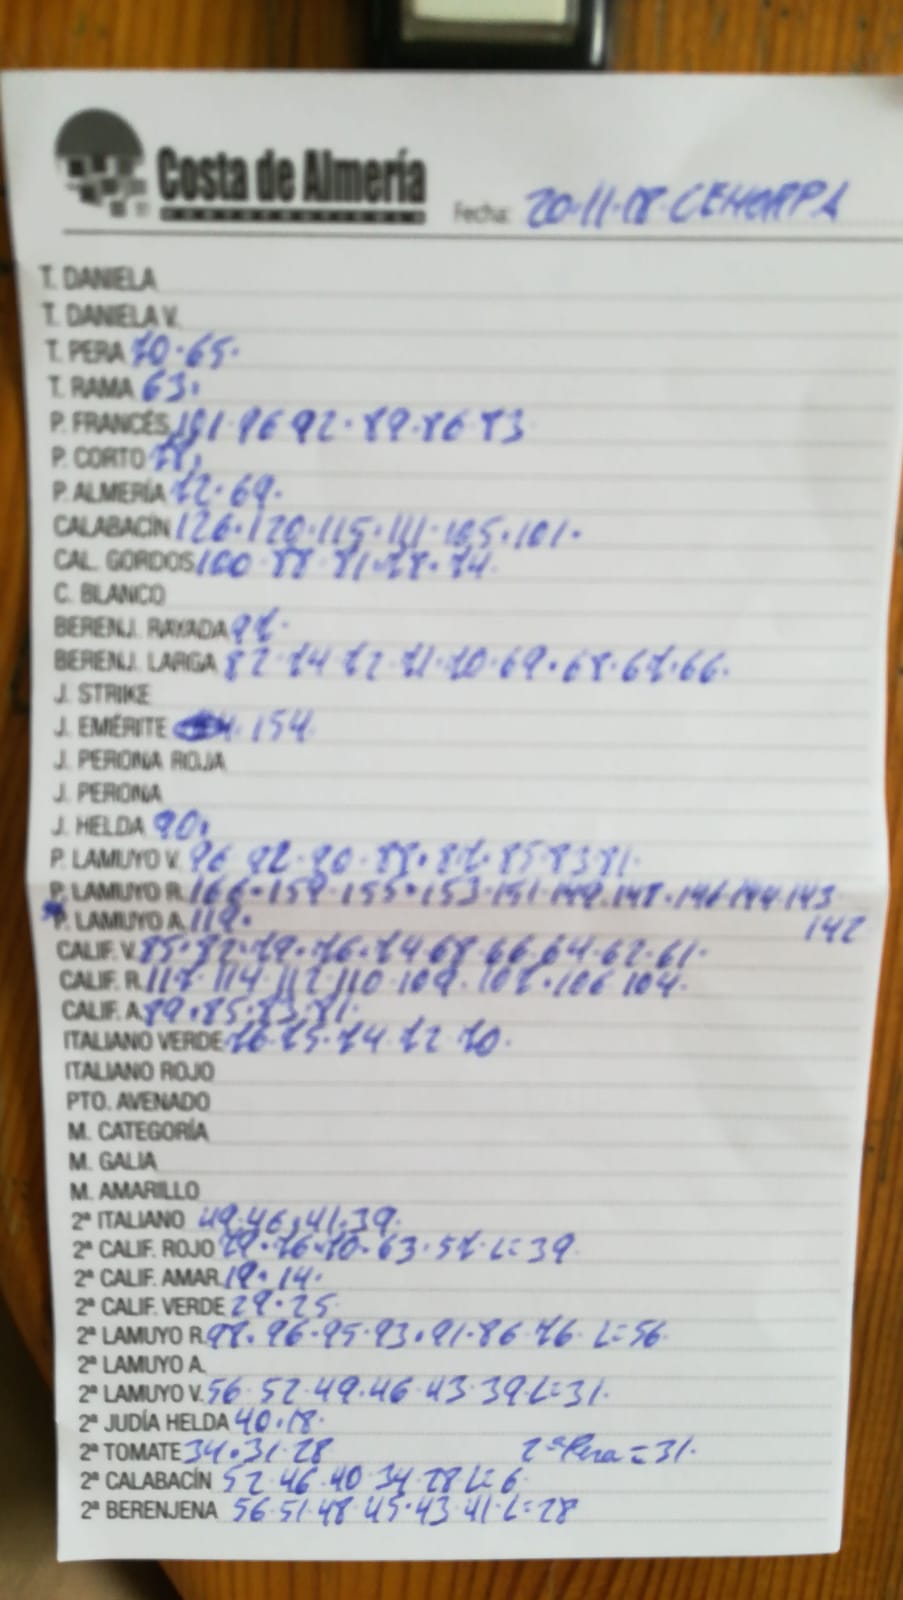 Costa de Almería
Fecha: 20-11-08-CEHORPA
T. DANIELA
T. DANIELA V.
T. PERA 70.65.
T. RAMA 63.
P. FRANCÉS 101.96 92.89.86 83
P. CORTO 78.
P. ALMERÍA 72.69.
CALABACÍN 126.120.115.111.105.101.
CAL. GORDOS 100.88.81.78.74.
C. BLANCO
BERENJ. RAYADA 97.
BERENJ. LARGA 82.74.72.71.70.69.68.67.66.
J. STRIKE
J. EMÉRITE 154.
J. PERONA ROJA
J. PERONA
J. HELDA 90.
P. LAMUYO V. 96 92.90.88.87.85.83.81.
P. LAMUYO R. 166.159.155.153.151.149.148.146.144.143.
P. LAMUYO A. 119. 142
CALIF. V. 85.82.79.76.74.68.66.64.62.61.
CALIF. R. 117.114.112.110.109.107.106 104.
CALIF. A. 89.85.83.81.
ITALIANO VERDE 76.75.74.72.70.
ITALIANO ROJO
PTO. AVENADO
M. CATEGORÍA
M. GALIA
M. AMARILLO
2ª ITALIANO 49.46.41.39.
2ª CALIF. ROJO 79.76.70.63.57.L=39
2ª CALIF. AMAR. 19.14.
2ª CALIF. VERDE 29.25.
2ª LAMUYO R. 98.96.95.93.91.86.76 L=56
2ª LAMUYO A.
2ª LAMUYO V. 56.52.49.46.43.39 L=31.
2ª JUDÍA HELDA 40.18.
2ª TOMATE 34.31.28 2ª Pera=31.
2ª CALABACÍN 52.46.40.34.28 L=6
2ª BERENJENA 56.51.48.45.43.41 L=28